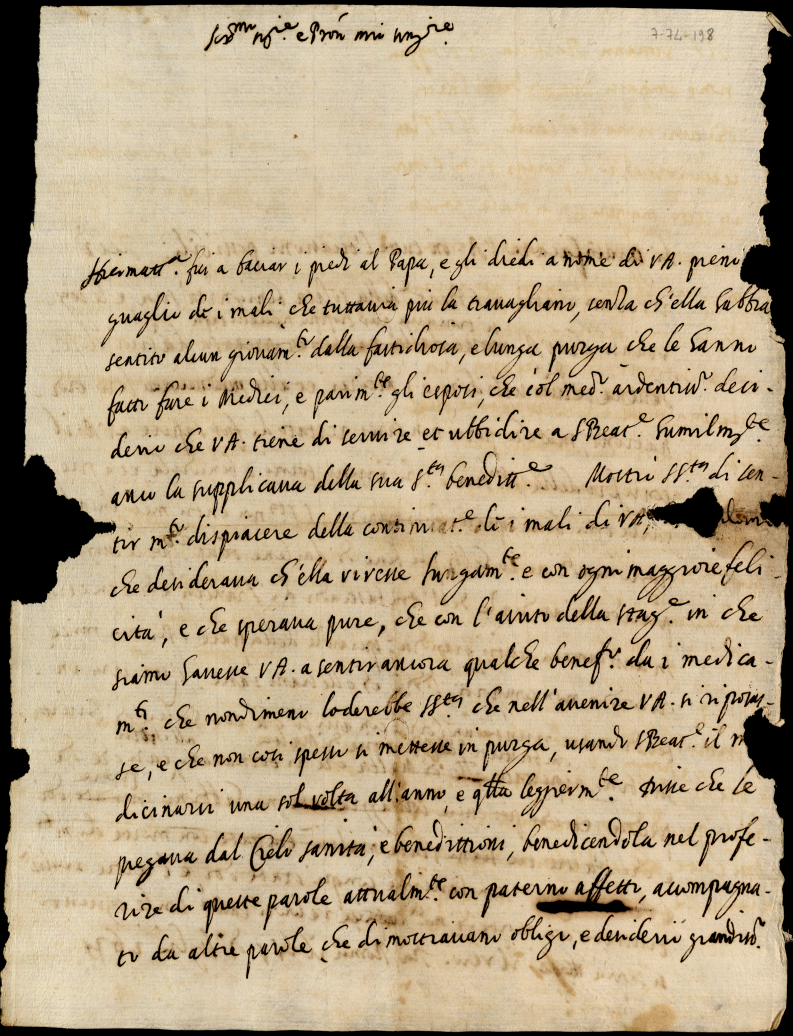 Ser.mo Sig.re e Prôn mio sing.re
7-74-198
Hiermatt.a fui a baciar i piedi al Papa, e gli diedi a nome di V.A. pieno
guaglio de i mali che tuttavia più la travagliano, senza ch'ella habbia
sentito alcun giovam.to dalla fastidiosa, e lunga purga che le hanno
fatto fare i Medici, e parim.te gli esposi, che col med.o ardentiss.o desi-
derio che V.A. tiene di servire et ubbidire a S. Beat.e humilm.te
anco la supplicava della sua S.ta beneditt.e Mostrò S. S.tà di sen-
tir m.to dispiacere della continuat.e de i mali di V.A.,
che desiderava ch'ella vivesse lungam.te e con ogni maggiore feli-
cità, e che sperava pure, che con l'aiuto della stag.e in che
siamo havesse V.A. a sentir ancora qualche benef.o da i medica-
m.ti che nondimeno loderebbe S. S.tà che nell'avenire V.A. si riposas-
se, e che non così spesso si mettesse in purga, usando S. Beat.e il
dicinarsi una sol volta all'anno, e q.lla leggierm.te Disse che le
pregava dal Cielo sanità, e benedittioni, benedicendola nel profe-
rire di queste parole attualm.te con paterno affetto, accompagna-
to da altre parole che dimostravano obligo, e desiderii grandiss.i